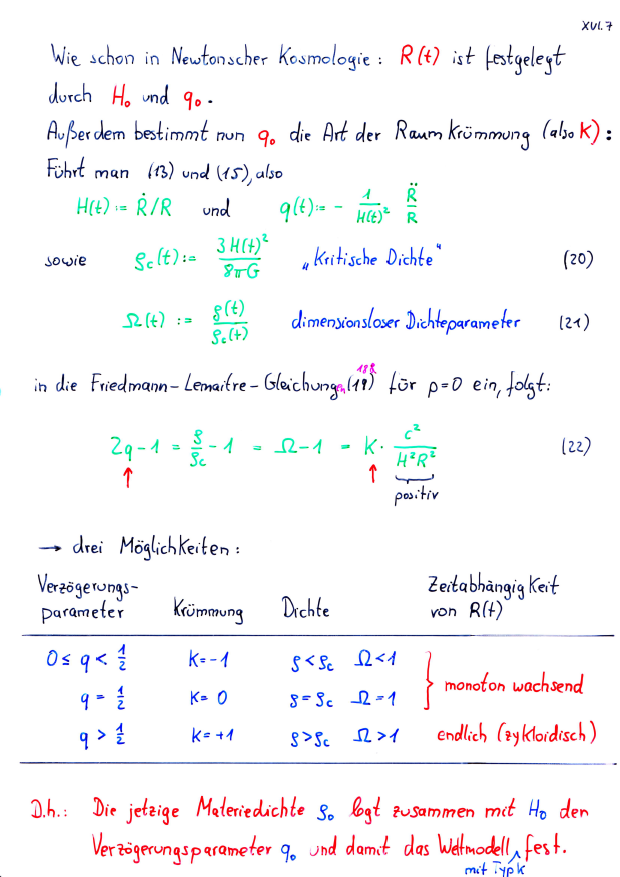 XVI.7
Wie schon in Newtonscher Kosmologie: R(t) ist festgelegt
durch H₀ und q₀.
Außerdem bestimmt nun q₀ die Art der Raumkrümmung (also K):
Führt man (13) und (15), also
H(t) := Ṙ/R und q(t) := - 1/H(t)² R̈/R
sowie ρc(t) := 3H(t)²/8πG „Kritische Dichte“ (20)
Ω(t) := ρ(t)/ρc(t) dimensionsloser Dichteparameter (21)
in die Friedmann-Lemaitre-Gleichungen (18 & 19) für p=0 ein, folgt:
2q-1 = ρ/ρc - 1 = Ω-1 = K · c²/H²R² (22)
positiv
→ drei Möglichkeiten:
Verzögerungs- Zeitabhängigkeit
parameter Krümmung Dichte von R(t)
0 ≤ q < 1/2 K=-1 ρ<ρc Ω<1
q = 1/2 K= 0 ρ=ρc Ω=1 } monoton wachsend
q > 1/2 K=+1 ρ>ρc Ω>1 endlich (zykloidisch)
D.h.: Die jetzige Materiedichte ρ₀ legt zusammen mit H₀ den
Verzögerungsparameter q₀ und damit das Weltmodell fest.
mit Typ K